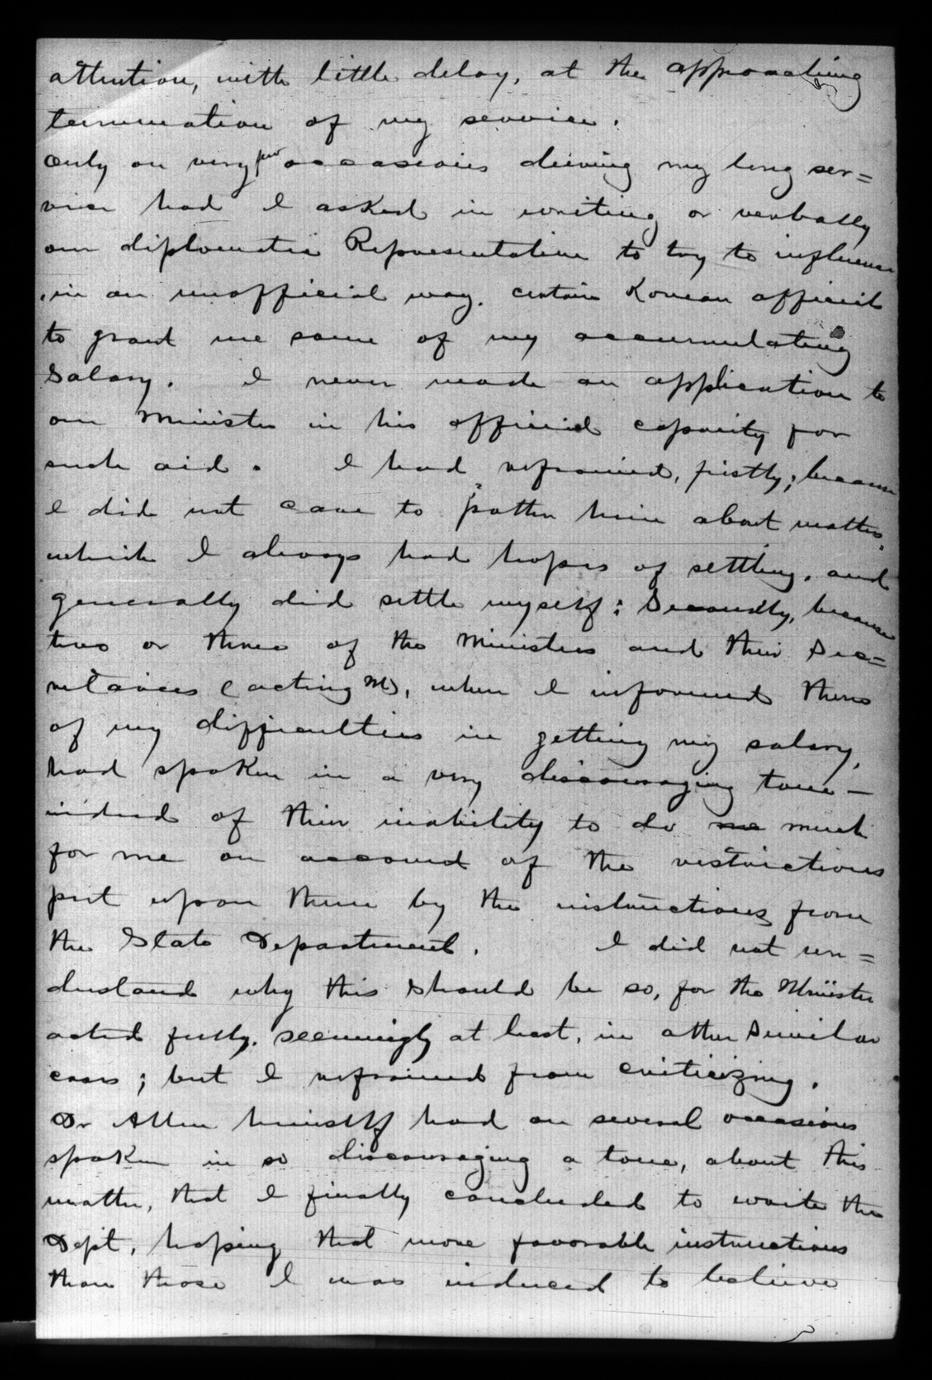 attention, with little delay, at the approaching
termination of my service.
Only on very few occasions during my long ser=
vice had I asked in writing or verbally
our diplomatic Representative to try to influence
in an unofficial way, certain Korean officials
to grant me some of my accumulating
salary. I never made an application to
our Minister in his official capacity for
such aid. I had refrained, firstly; because
I did not care to bother him about matters,
which I always had hopes of settling, and
generally did settle myself: Secondly, because
two or three of the Ministers and their Sec=
retaries (acting M), when I informed them
of my difficulties in getting my salary,
had spoken in a very discouraging tone—
indeed of their inability to do me much
for me on account of the restrictions
put upon them by the instructions from
the State Department. I did not un=
derstand why this should be so, for the Minister
acted fully, seemingly at least, in other similar
cases; but I refrained from criticizing.
Dr Allen himself had on several occasions
spoken in so discouraging a tone, about this
matter, that I finally concluded to write the
Dept, hoping that more favorable instructions
than those I was induced to believe